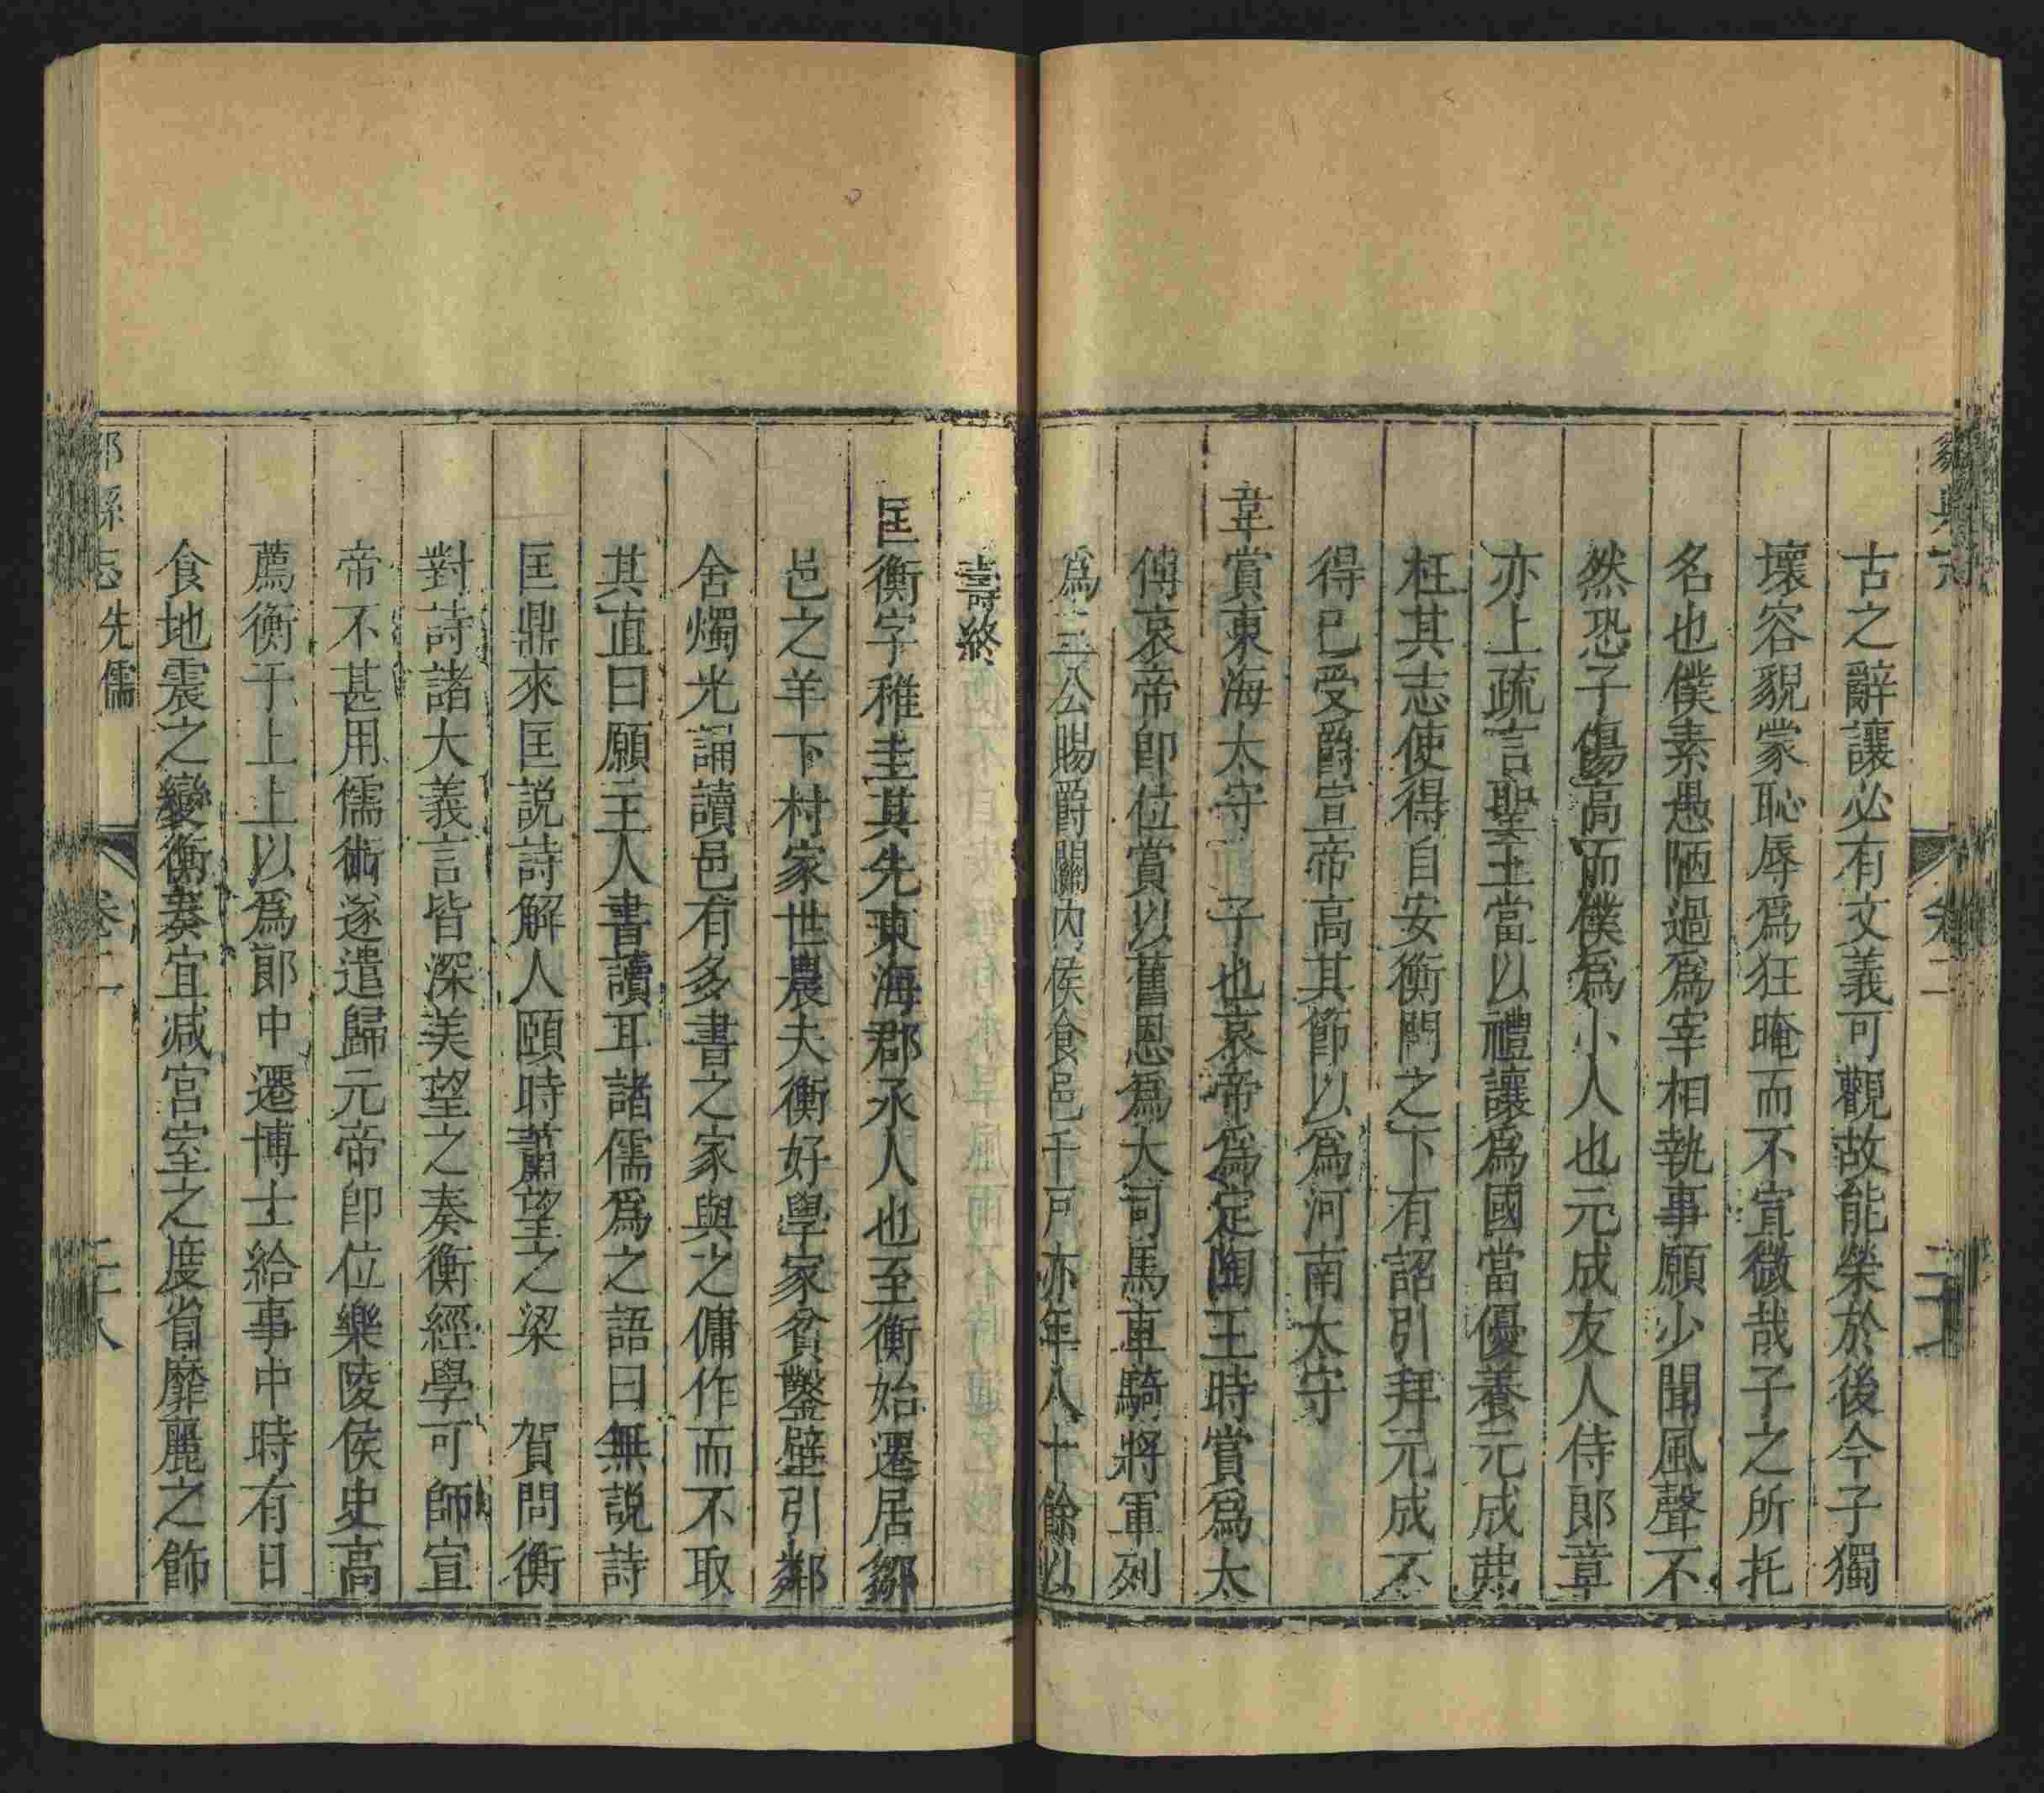 鄒縣志
卷二
二十七
古之辭讓必有文義可觀故能榮於後今子獨
壞容貌蒙恥辱爲狂晻而不宣微哉子之所托
名也僕素愚陋過爲宰相執事願少聞風聲不
然恐子傷高而僕爲小人也元成友人侍郎章
亦上疏言聖王當以禮讓爲國當優養元成弗
枉其志使得自安衡門之下有詔引拜元成不
得已受爵宣帝高其節以爲河南太守
韋賞東海太守
子也哀帝爲定陶王時賞爲太
傅哀帝卽位賞以舊恩爲大司馬車騎將軍列
爲三公賜爵關内侯食邑千戸亦年八十餘以
壽終
匡衡字稚圭其先東海郡永人也至衡始遷居鄒
邑之羊下村家世農夫衡好學家貧鑿壁引鄰
舍燭光誦讀邑有多書之家與之傭作而不取
其直曰願主人書讀耳諸儒爲之語曰無說詩
匡鼎來匡說詩解人頤時蕭望之梁 賀問衡
對詩諸大義言皆深美望之奏衡經學可師宣
帝不甚用儒術遂遣歸元帝卽位樂陵侯史高
薦衡于上上以爲郞中遷博士給事中時有日
食地震之變衡奏宜減宮室之度省靡麗之飾
縣志 先儒
卷二
二十八